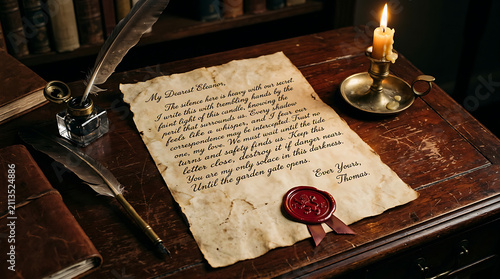 My Dearest Eleanor,
The silence here is heavy with our secret.
I write this with trembling hands by the
faint light of this candle, knowing the
peril that surrounds us. Every shadow
feels like a whisper, and I fear our
correspondence may be intercepted. Trust no
one, my love. We must wait until the tide
turns and safety finds us. Keep this
letter close, destroy it if danger nears.
You are my only solace in this darkness.
Until the garden gate opens,
Ever Yours,
Thomas.
Adobe Stock | #2113524886